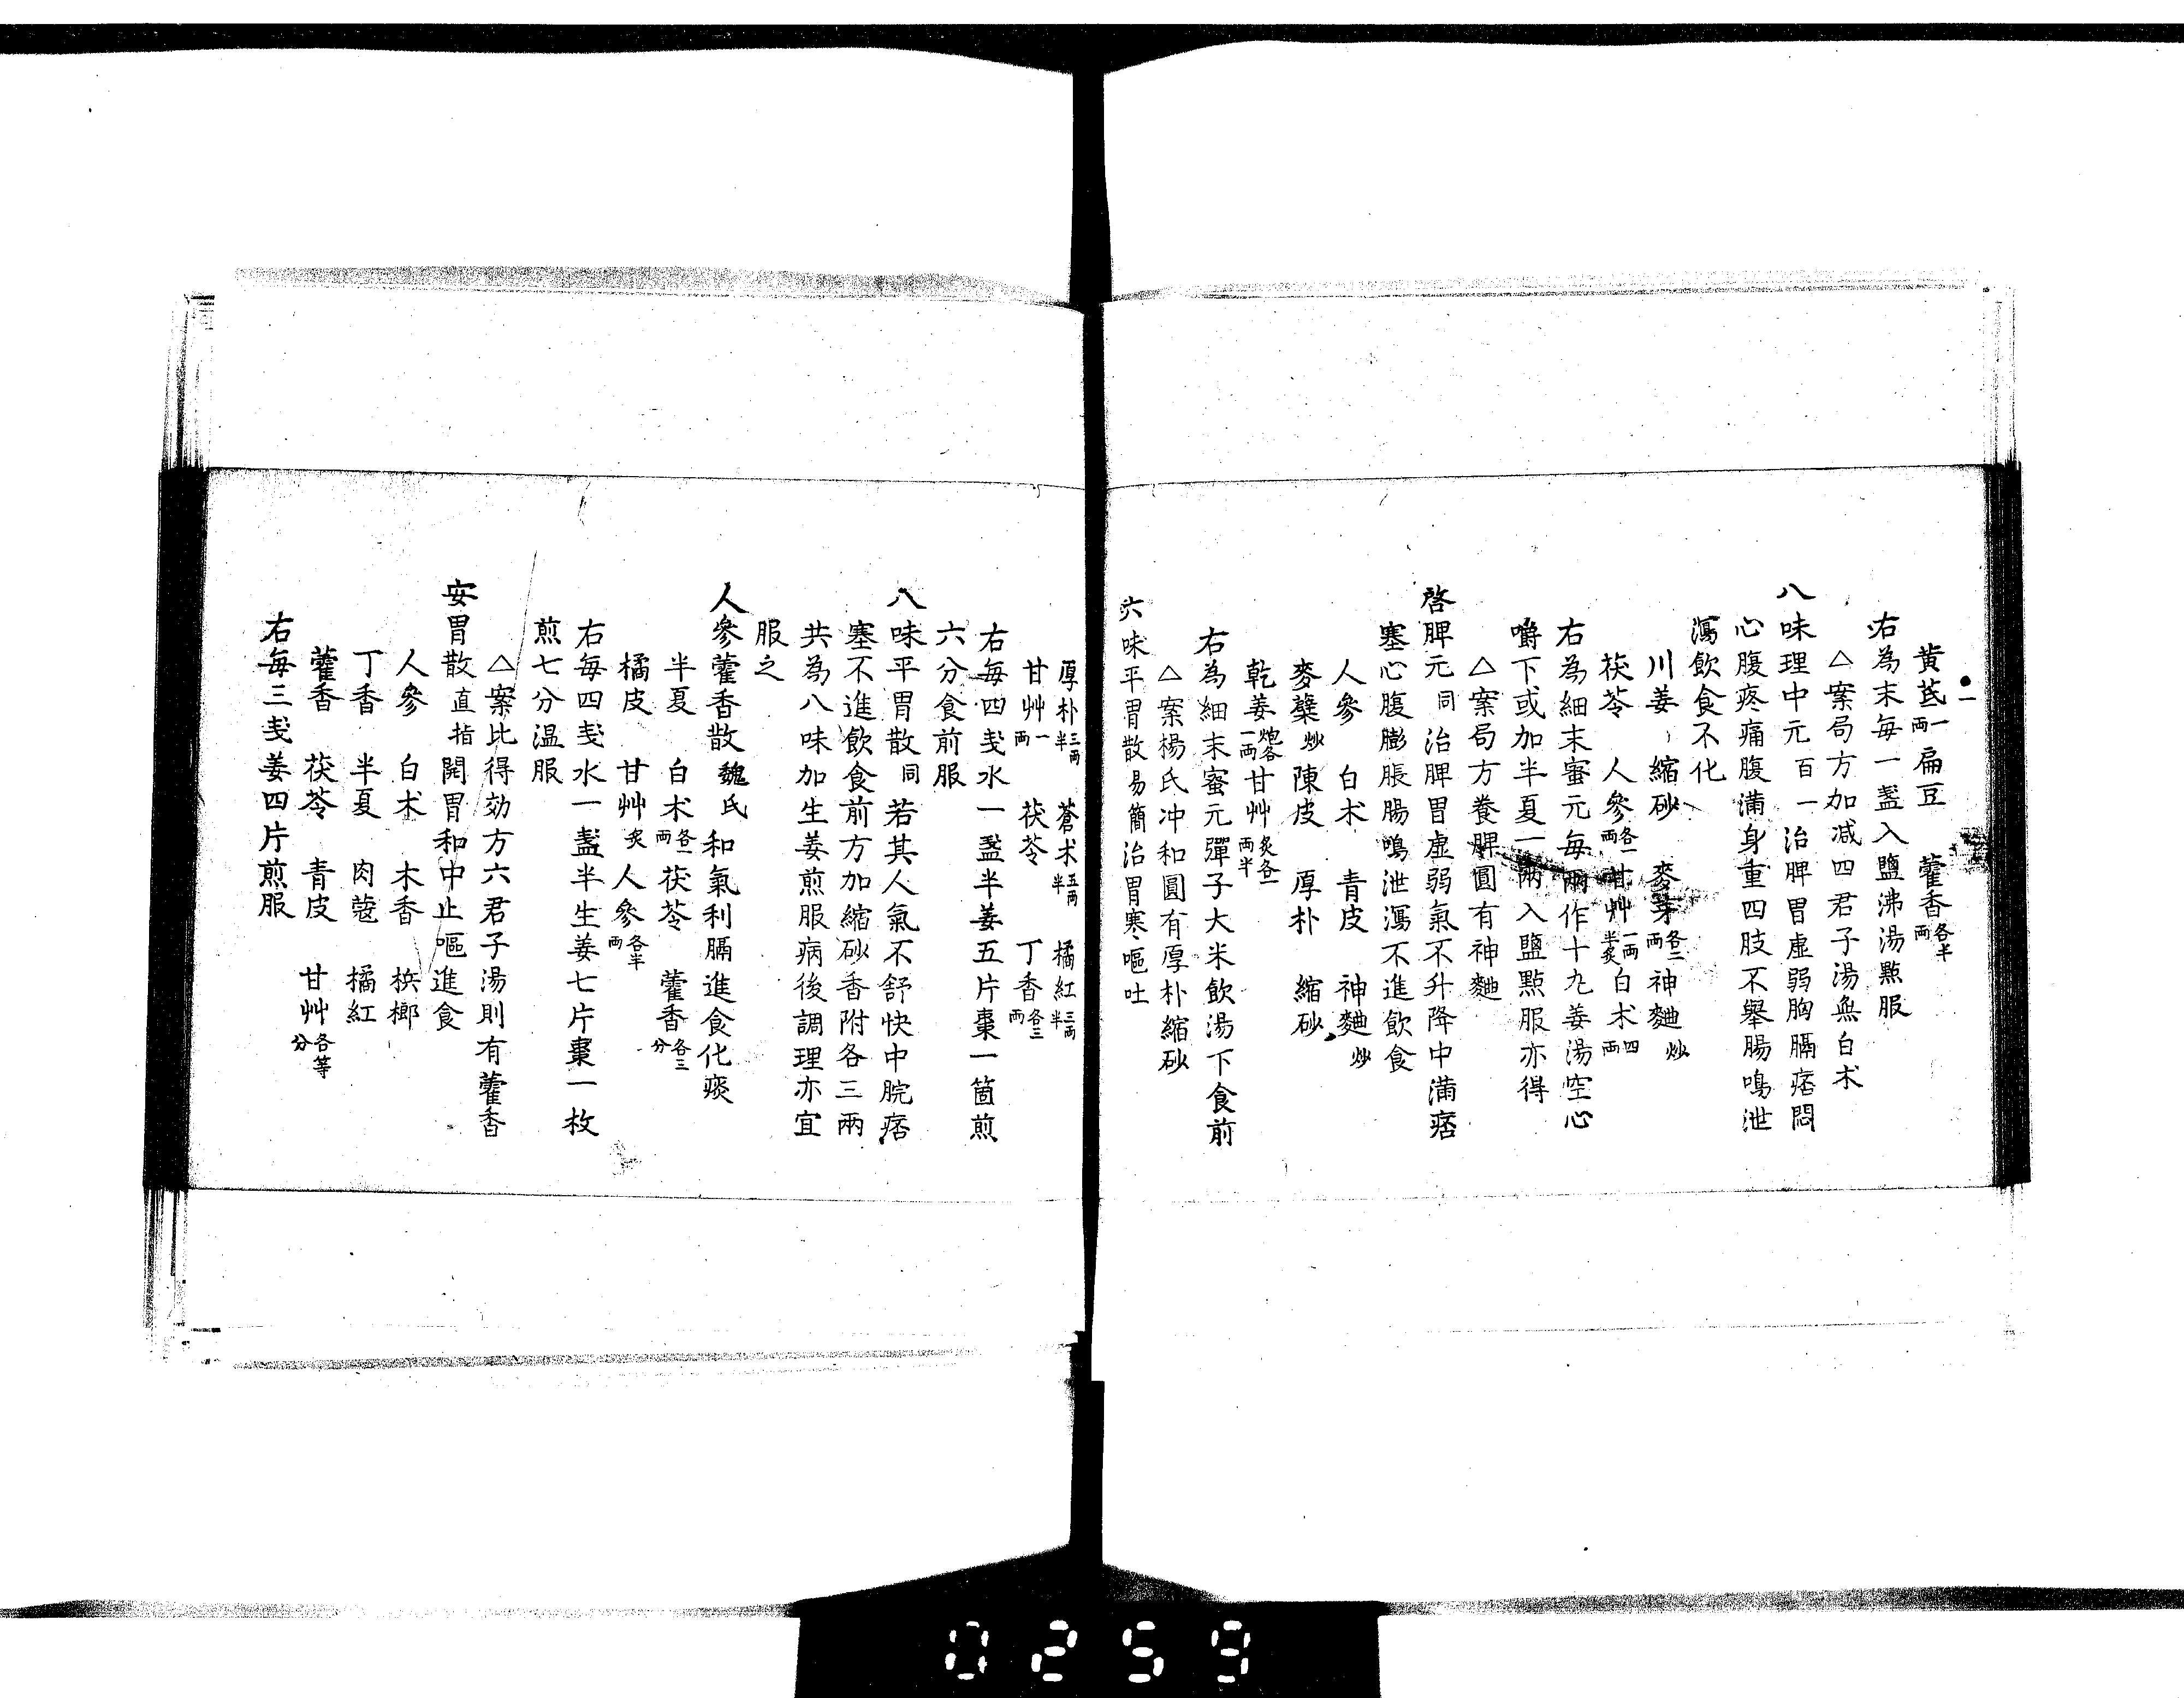 黄芪一両 扁豆 藿香各半両
右為末毎一盞入鹽沸湯點服
△案局方加减四君子湯無白术
八味理中元百一治脾胃虚弱胸膈痞悶
心腹疼痛腹満身重四肢不擧腸鳴泄
瀉飲食不化
川姜 縮砂 麥芽各二両 神麯炒
茯苓 人參各一両 甘艸一両半炙 白术四両
右為細末蜜元毎兩作十九姜湯空心
嚼下或加半夏一兩入鹽點服亦得
△案局方養脾圓有神麯
啓脾元同治脾胃虚弱氣不升降中満痞
塞心腹膨脹腸鳴泄瀉不進飲食
人參 白术 青皮 神麯炒
麥蘖炒 陳皮 厚朴 縮砂
乾姜炮各一両 甘艸炙各一両半
右為細末蜜元彈子大米飲湯下食前
△案楊氏冲和圓有厚朴縮砂
六味平胃散易簡治胃寒嘔吐
厚朴三両半 蒼术五両半 橘紅三両半
甘艸一両 茯苓 丁香各三両
右毎四戔水一盞半姜五片棗一箇煎
六分食前服
八味平胃散同若其人氣不舒快中脘痞
塞不進飲食前方加縮砂香附各三兩
共為八味加生姜煎服病後調理亦宜
服之
人參藿香散魏氏和氣利膈進食化痰
半夏 白术各一両 茯苓 藿香各三分
橘皮 甘艸炙 人參各半両
右毎四戔水一盞半生姜七片棗一枚
煎七分温服
△案比得効方六君子湯則有藿香
安胃散直指開胃和中止嘔進食
人參 白术 木香 梹榔
丁香 半夏 肉蔻 橘紅
藿香 茯苓 青皮 甘艸各等分
右毎三戔姜四片煎服
0259